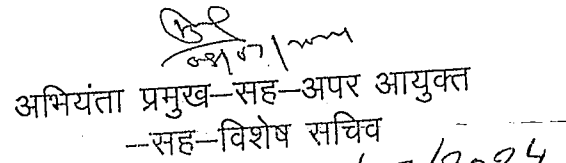 अभियंता प्रमुख–सह–अपर आयुक्त
--सह–विशेष सचिव
/2024